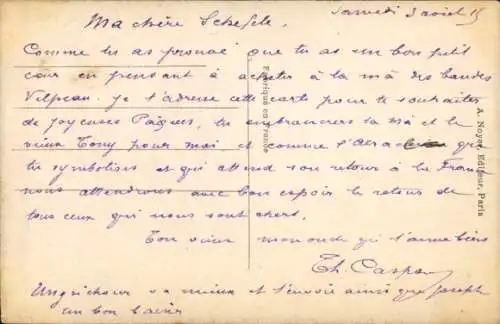 Samedi 3 avril 15
Ma chère
Comme tu as prouvé que tu as un bon petit
cœur en pensant à acheter à la mà des bandes
Velpeau. Je t'adresse cette carte pour te souhaiter
de joyeuses Pâques, tu embrasseras la mà et le
vieux Tony pour moi et comme l'Alsacienne que
tu symbolises et qui attend son retour à la France
nous attendrons avec bon espoir le retour de
tous ceux qui nous sont chers.
Ton vieux mononcle qui t'aime bien
Th. Caspar
va mieux et t'envoie ainsi que Joseph
un bon baiser
Fabriqué en France
A. Noyer, Editeur, Paris